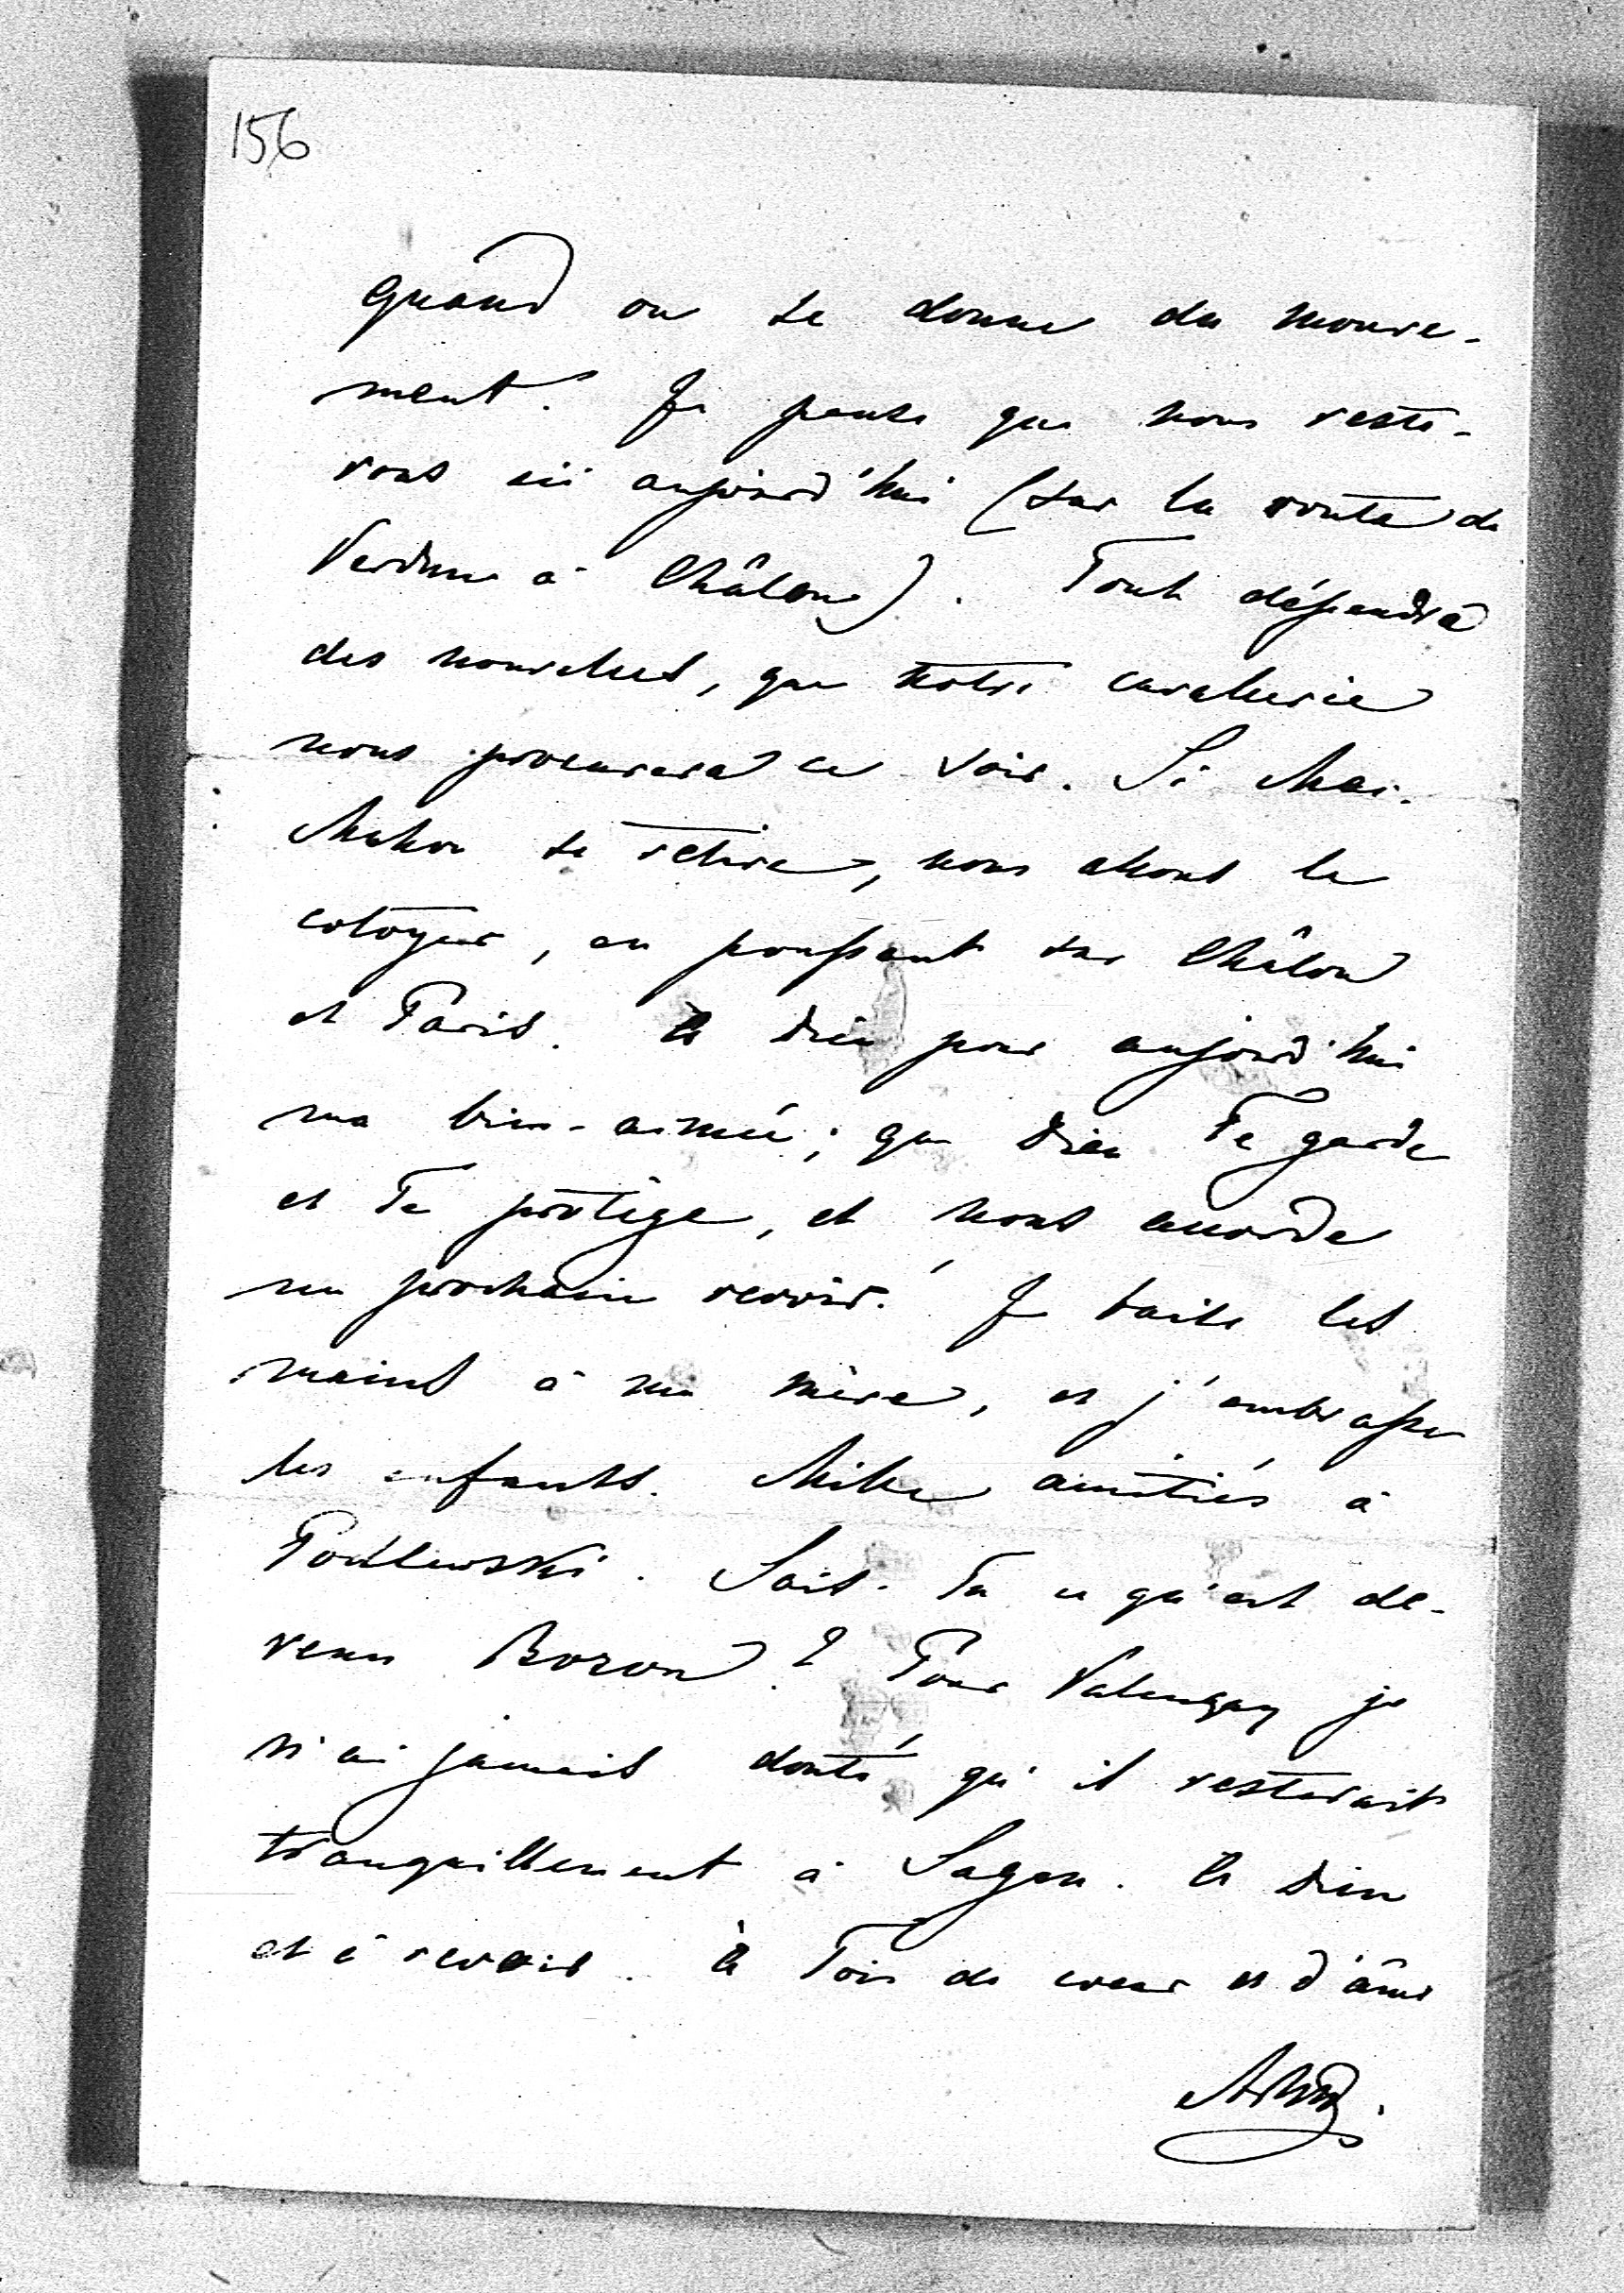 156
quand on se donne du mouve-
ment! Je pense que nous reste-
rons ici aujourd'hui (sur la route de
Verdun à Châlons). Tout dépendra
des nouvelles, que notre cavalerie
nous procurera ce soir. Si Mac-
Mahon se retire, nous allons le
cotoyer, en poussant sur Châlons
et Paris. A Dieu pour aujourd'hui
ma bien-aimée; que Dieu Te garde
et Te protège, et nous accorde
un prochain revoir! Je baise les
mains à ma mère, et j'embrasse
les enfants. Mille amitiés à
Podlewski. Sais-Tu ce qu'est de-
venu Bozon? Pour Valençay je
n'ai jamais douté qu'il resterait
tranquillement à Sagan. A Dieu
et à revoir. À Toi de coeur et d'âme